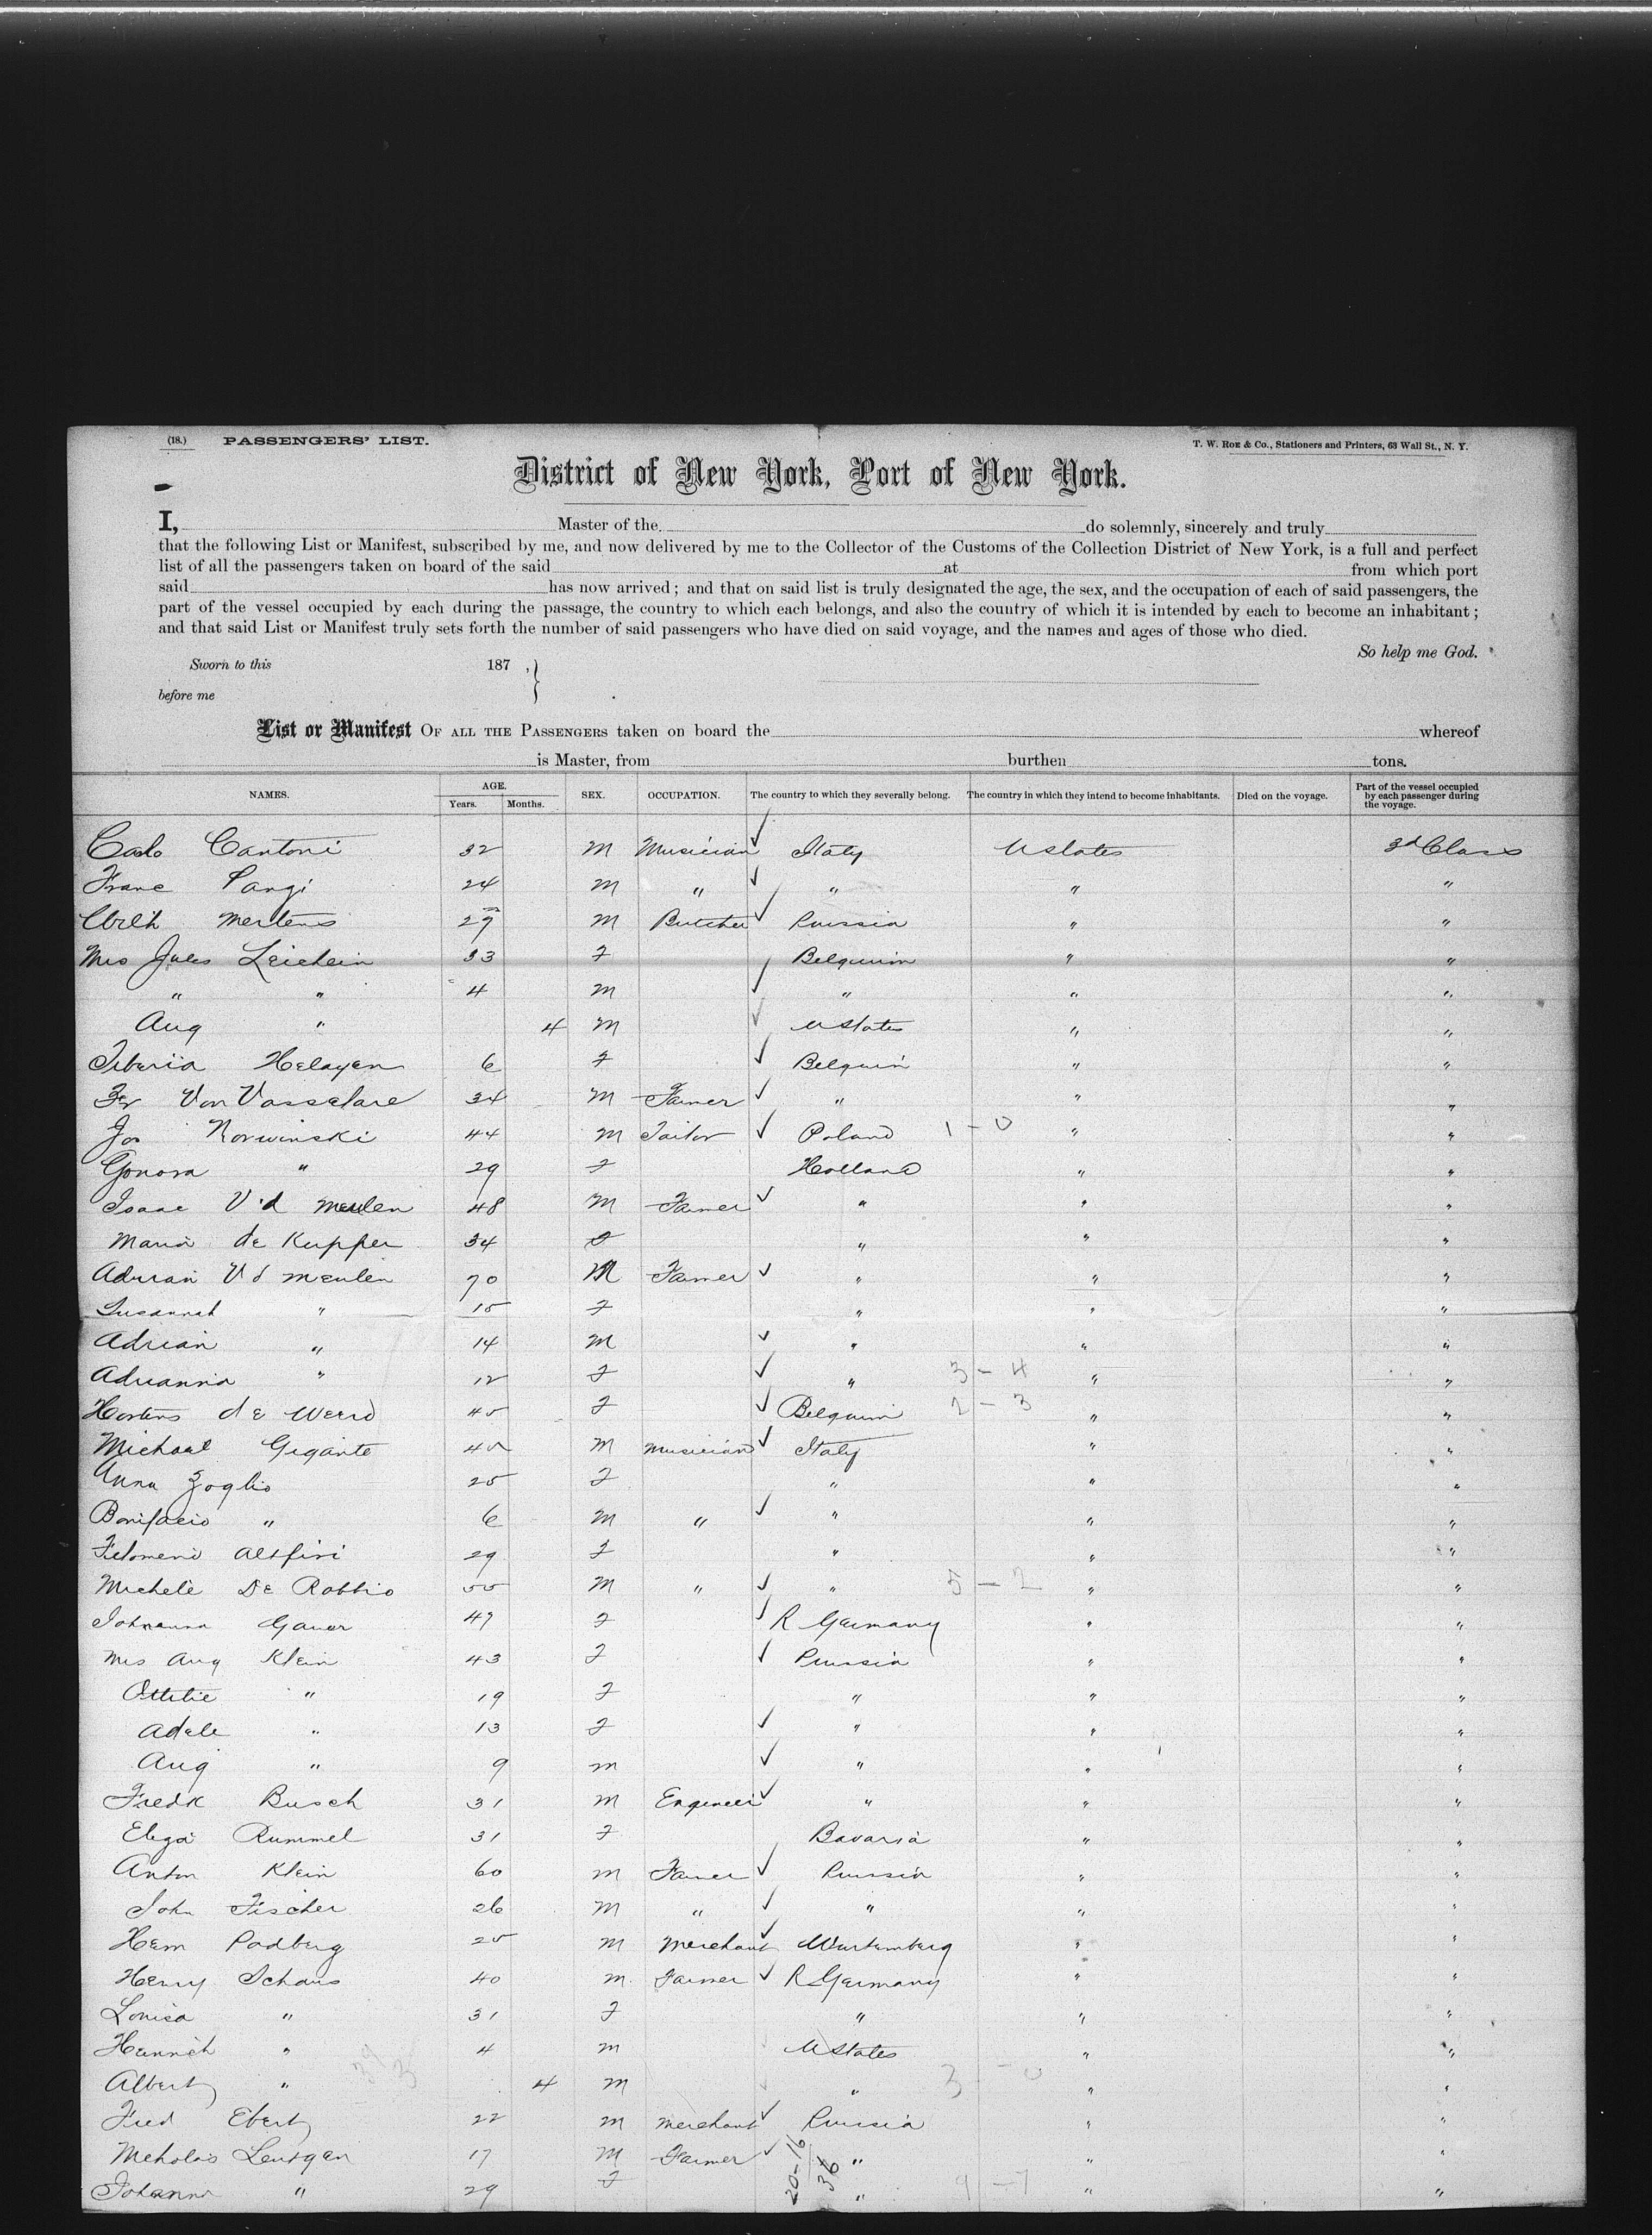 (18.) PASSENGERS' LIST. T. W. Roe & Co., Stationers and Printers, 63 Wall St., N. Y.
District of New York, Port of New York.
I, Master of the do solemnly, sincerely and truly
that the following List or Manifest, subscribed by me, and now delivered by me to the Collector of the Customs of the Collection District of New York, is a full and perfect
list of all the passengers taken on board of the said at from which port
said has now arrived; and that on said list is truly designated the age, the sex, and the occupation of each of said passengers, the
part of the vessel occupied by each during the passage, the country to which each belongs, and also the country of which it is intended by each to become an inhabitant;
and that said List or Manifest truly sets forth the number of said passengers who have died on said voyage, and the names and ages of those who died.
So help me God.
Sworn to this 187 ,}
before me
List or Manifest Of all the Passengers taken on board the whereof
is Master, from burthen tons.
NAMES. AGE. Years. Months. SEX. OCCUPATION. The country to which they severally belong. The country in which they intend to become inhabitants. Died on the voyage. Part of the vessel occupied by each passenger during the voyage.
Carlo Cantoni 32 M Musician Italy U States 3d Class
Franc Pangi 24 M " " " "
Wilh Mertens 29 M Butcher Prussia " "
Mrs Jules Leichein 33 F Belguim " "
" " 4 M " " "
Aug " 4 M U States " "
Helayen 6 F Belguim " "
Fr Von Vasselare 34 M Famer " " "
Jos Norwinski 44 M Tailor Poland 1 - 0 " "
Gonora " 29 F Holland " "
Isaac V'd Meulen 48 M Famer " " "
Maria de Kupper 34 F " " "
Adrian V d Meulen 70 M Famer " " "
Susannah " 15 F " " "
Adrian " 14 M " " "
Adrianna " 12 F " 3 - 4 " "
Hortens de Weerd 45 F Belguim 2 - 3 " "
Michael Gigante 45 M Musician Italy " "
Anna Zoglio 25 F " " "
Bonifacio " 6 M " " " "
Filomeno Altfiri 29 F " " "
Michele De Robbio 55 M " " 5 - 2 " "
Johanna Gauer 47 F R Germany " "
Mrs Aug Klein 43 F Prussia " "
Ottilie " 19 F " " "
Adele " 13 F " " "
Aug " 9 M " " "
Fredk Busch 31 M Engineer " " "
Eliza Rummel 31 F Bavaria " "
Anton Klein 60 M Famer Prussia " "
John Fischer 26 M " " " "
Herm Padberg 25 M Merchant Wurtemberg " "
Henry Schaus 40 M Farmer R Germany " "
Louisa " 31 F " " "
Heinrich " 4 M U States " "
Albert " 4 M " 3 - 0 " "
Fred Ebert 22 M Merchant Prussia " "
Nicholas Lentgen 17 M Farmer " " "
Johanna " 29 F 20-16 36 " 9 - 7 " "